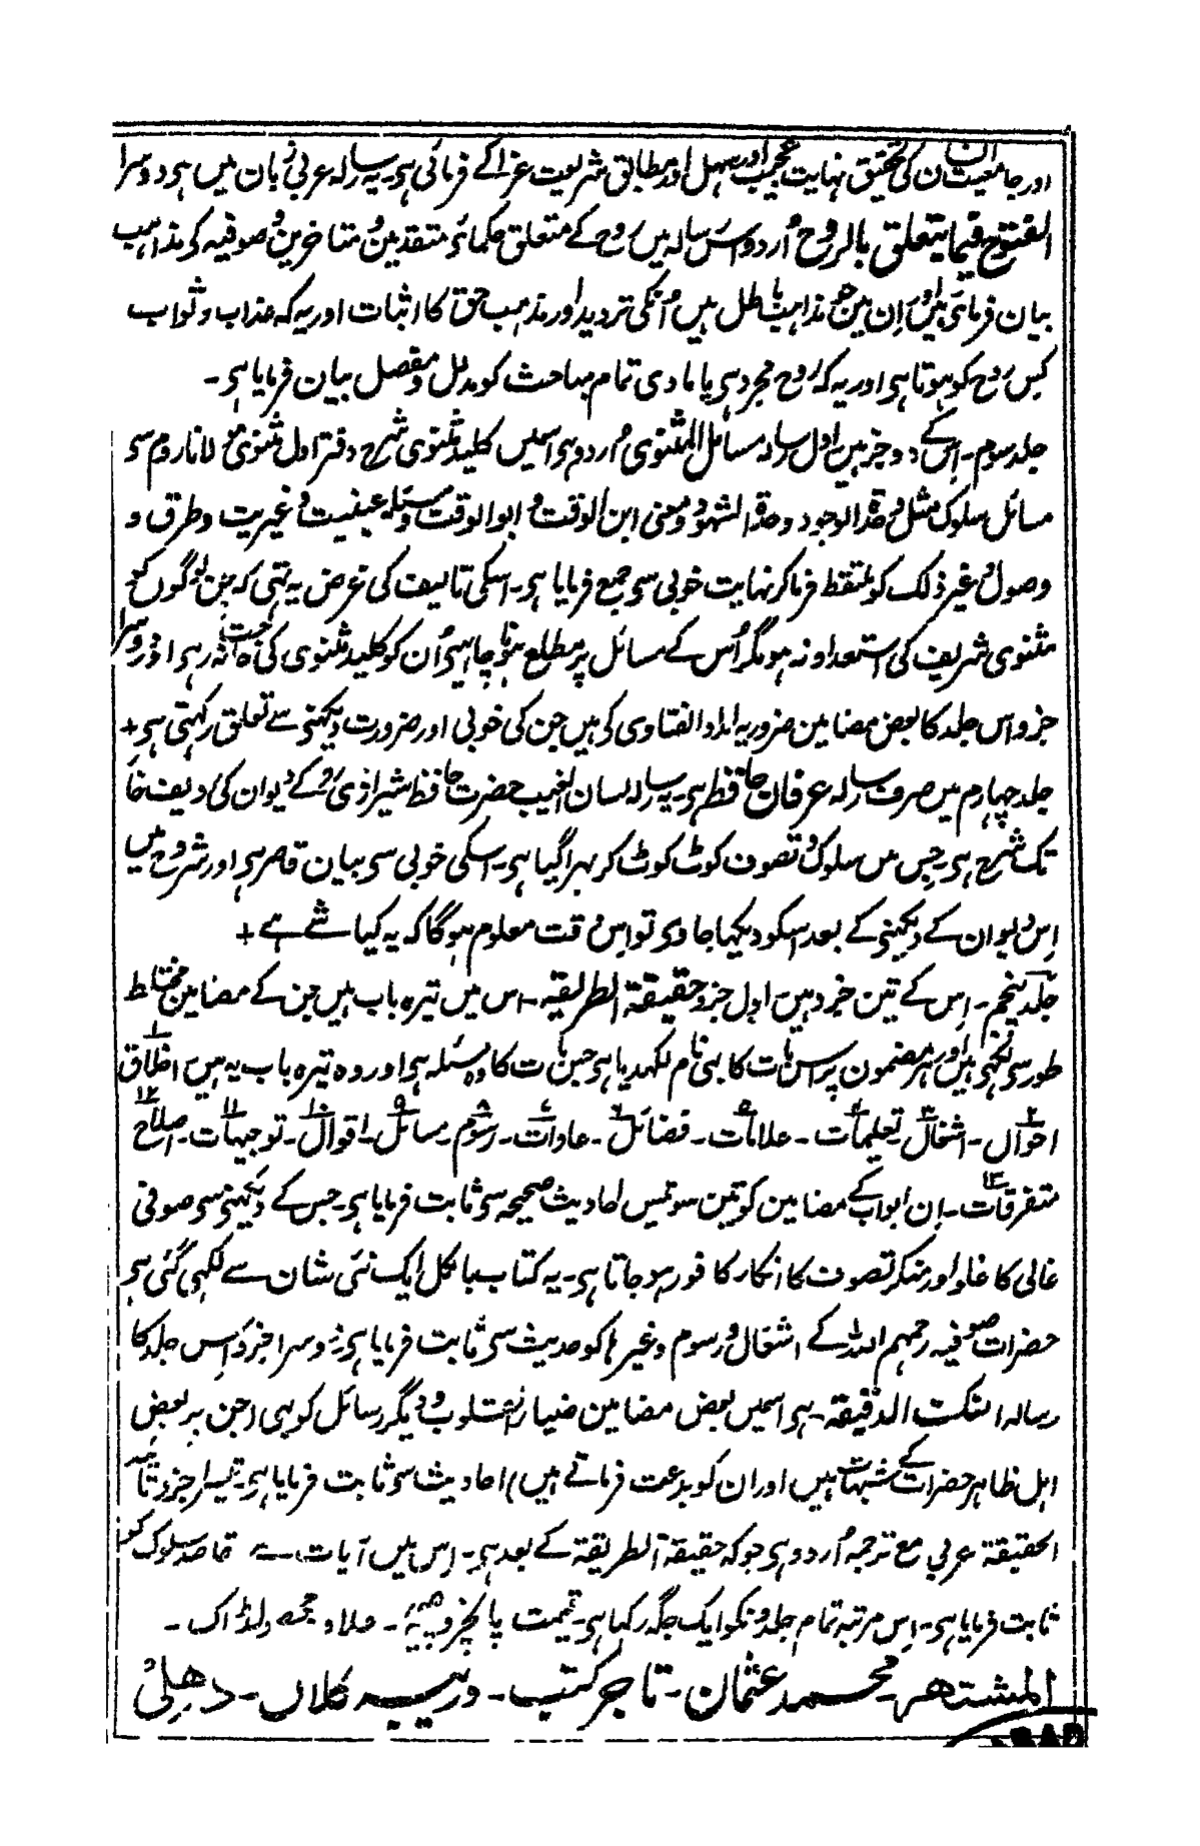 اور جامعیت ان کی تحقیق نہایت عجیب اور سہل اور مطابق شریعت غرا کے فرمائی ہی۔ یہ رسالہ عربی زبان میں ہی دوسرا
الفتوح فیما یتعلق بالروح اُردو اس رسالہ میں روح کے متعلق حکمائے متقدمین و متاخرین و صوفیہ کی مذاہب
بیان فرمائی ہیں اور اِن میں جو مذاہب باطل ہیں اُنکی تردید اور مذہب حق کا اثبات اور یہ کہ عذاب و ثواب
کِس روح کو ہوتا ہی اور یہ کہ روح مجرد ہی یا مادی تمام مباحث کو مدلل و مفصل بیان فرمایا ہی۔
جلد سوم۔ اِس کے دو جز ہیں اول رسالہ مسائل المثنوی اُردو ہی اسمیں کلید مثنوی شرح دفتر اول مثنوی مولانا روم سی
مسائل سلوک مثل وحدۃ الوجود و وحدۃ الشہود و معنی ابن الوقت و ابو الوقت و مسئلہ عینیت و غیریت و طرق و
وصول و غیر ذلک کو ملتقط فرما کر نہایت خوبی سی جمع فرمایا ہی۔ اسکی تالیف کی غرض یہ تہی کہ جن لوگوں کو
مثنوی شریف کی استعداد نہ ہو مگر اُس کے مسائل پر مطلع ہونا چاہیں اُن کو کلید مثنوی کی حاجت نہ رہی اور دوسرا
جزو اس جلد کا بعض مضامین ضروریہ امداد الفتاوی کی ہیں جن کی خوبی اور ضرورت دیکہنی سے تعلق رکہتی ہی+
جلد چہارم میں صرف رسالہ عرفان حافظ ہی۔ یہ رسالہ لسان الغیب حضرت حافظ شیرازی کے دیوان کی ردیف خا
تک شرح ہی۔ جس میں سلوک و تصوف کوٹ کوٹ کر بہرا گیا ہی۔ اسکی خوبی سی بیان قاصر ہی اور شروح میں
اِس دیوان کے دیکہنی کے بعد اسکو دیکہا جاوی تو اس وقت معلوم ہوگا کہ یہ کیا شے ہے+
جلد پنجم۔ اِس کے تین جزو ہیں اول جزو حقیقۃ الطریقہ۔ اس میں تیرہ باب ہیں جن کے مضامین مختلط
طور سی لکہی ہیں اور ہر مضمون پر اس بات کا بہی نام لکہدیا ہی جس باب کا وہ مسئلہ ہی اور وہ تیرہ باب یہ ہیں اخلاق۱
احوال۲۔ اشغال۳۔ تعلیمات۴۔ علامات۵۔ فضائل۶۔ عادات۷۔ رسوم۸۔ مسائل۹۔ اقوال۱۰۔ توجیہات۱۱۔ اصلاح۱۲
متفرقات۱۳۔ اِن ابواب کے مضامین کو تین سو تیس احادیث صحیحہ سی ثابت فرمایا ہی۔ جس کے دیکہنی سی صوفی
غالی کا غلو اور منکر تصوف کا انکار کافور ہو جاتا ہی۔ یہ کتاب بالکل ایک نئی شان سے لکہی گئی ہی
حضرات صوفیہ رحمہم اللہ کے اشغال و رسوم وغیرہا کو حدیث سی ثابت فرمایا ہی دوسرا جزو اِس جلد کا
رسالہ النکت الدقیقہ۔ ہی اسمیں بعض مضامین ضیاء القلوب و دیگر رسائل کو بہی (جن پر بعض
اہل ظاہر حضرات کے شبہات ہیں اور ان کو بدعت فرماتے ہیں) احادیث سی ثابت فرمایا ہی۔ تیسرا جزو تائید
الحقیقۃ عربی مع ترجمہ اُردو ہی جو کہ حقیقۃ الطریقۃ کے بعد ہی۔ اِس میں آیات سے مقاصد سلوک کو
ثابت فرمایا ہی۔ اِس مرتبہ تمام جلدونکو ایک جگہ رکہا ہی۔ قیمت پانچ روپیہ۔ علاوہ محصولڈاک۔
المشتہر۔ محمد عثمان۔ تاجر کتب۔ دریبہ کلاں۔ دھلی